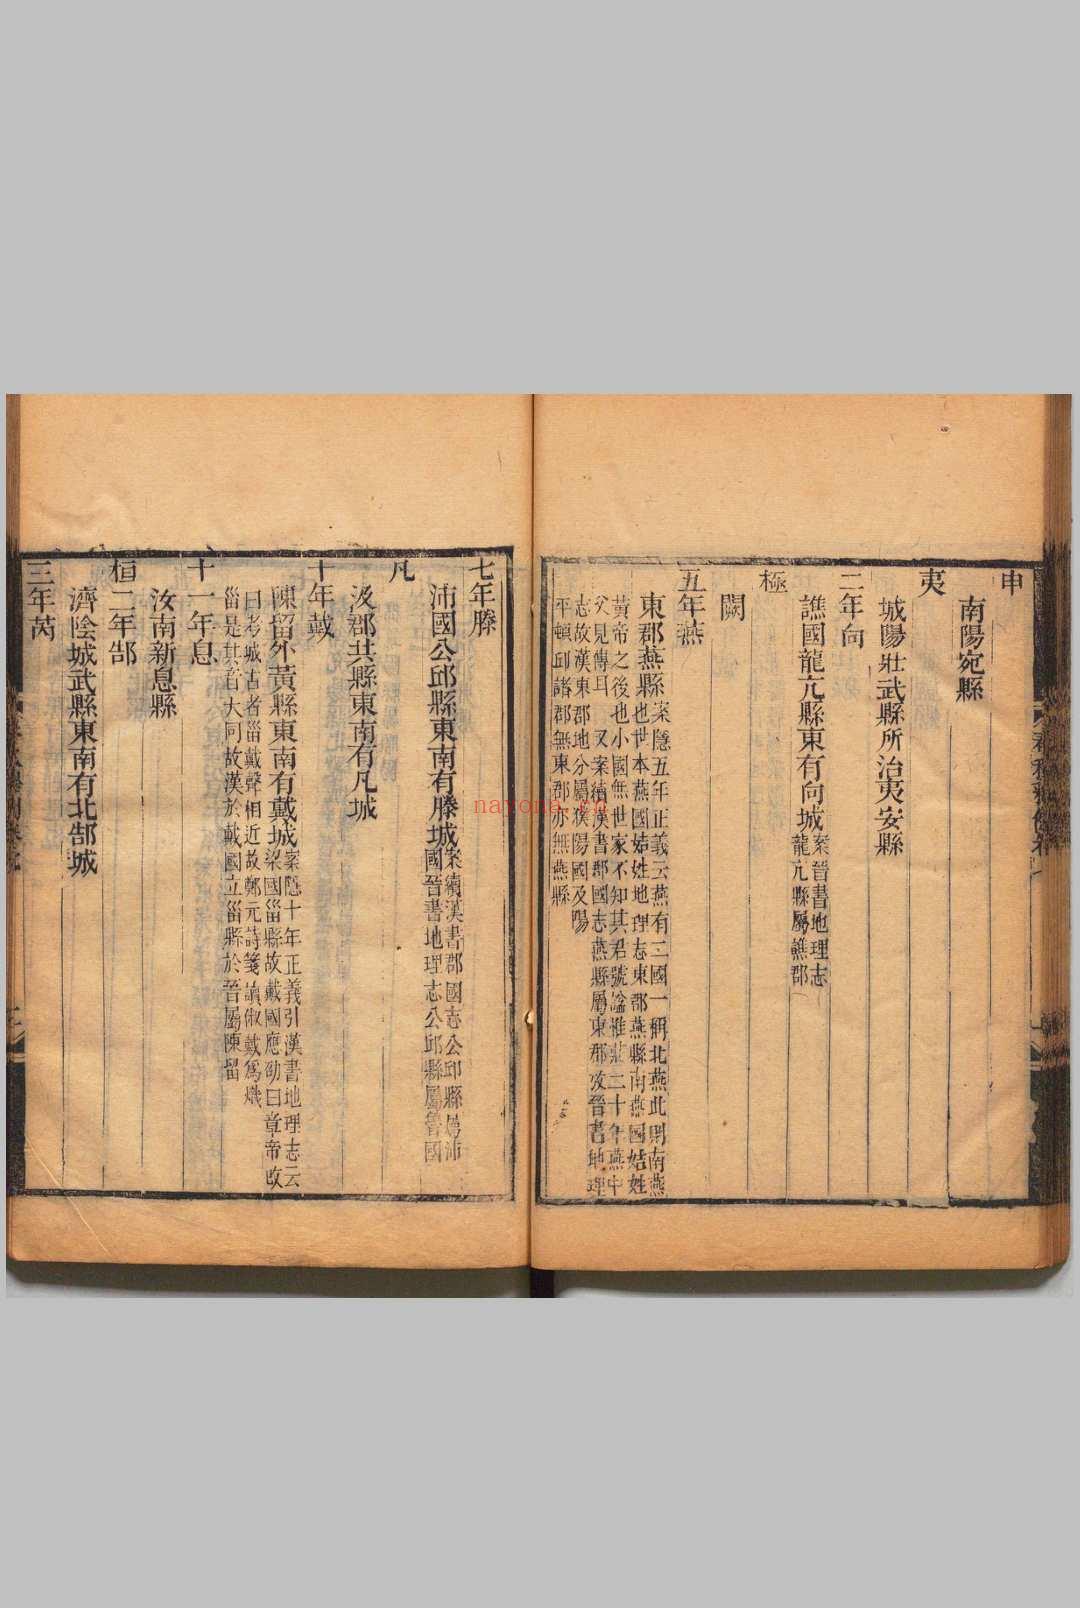 申
南陽宛縣
夷
城陽壯武縣所治夷安縣
二年向
譙國龍亢縣東有向城案晉書地理志
龍亢縣屬譙郡
極
闕
五年燕
東郡燕縣案隱五年正義云燕有二國一稱北燕此則南燕
也世本燕國姞姓地理志東郡燕縣南燕國姞姓
黃帝之後也小國無世家不知其君號諡惟莊二十年燕仲
父見傳耳 又案續漢書郡國志燕縣屬東郡攷晉書地理
志故漢東郡地分屬濮陽國及陽
平頓邱諸郡無東郡亦無燕縣
七年滕
沛國公邱縣東南有滕城案續漢書郡國志公邱縣屬沛
國晉書地理志公邱縣屬魯國
凡
汲郡共縣東南有凡城
十年戴
陳留外黃縣東南有戴城案隱十年正義引漢書地理志云
梁國甾縣故戴國應劭曰章帝改
曰考城古者甾戴聲相近故鄭元詩箋讀俶戴爲熾
甾是其音大同故漢於戴國立甾縣於晉屬陳留
十一年息
汝南新息縣
桓二年郜
濟陰城武縣東南有北郜城
三年芮
nayona.cn